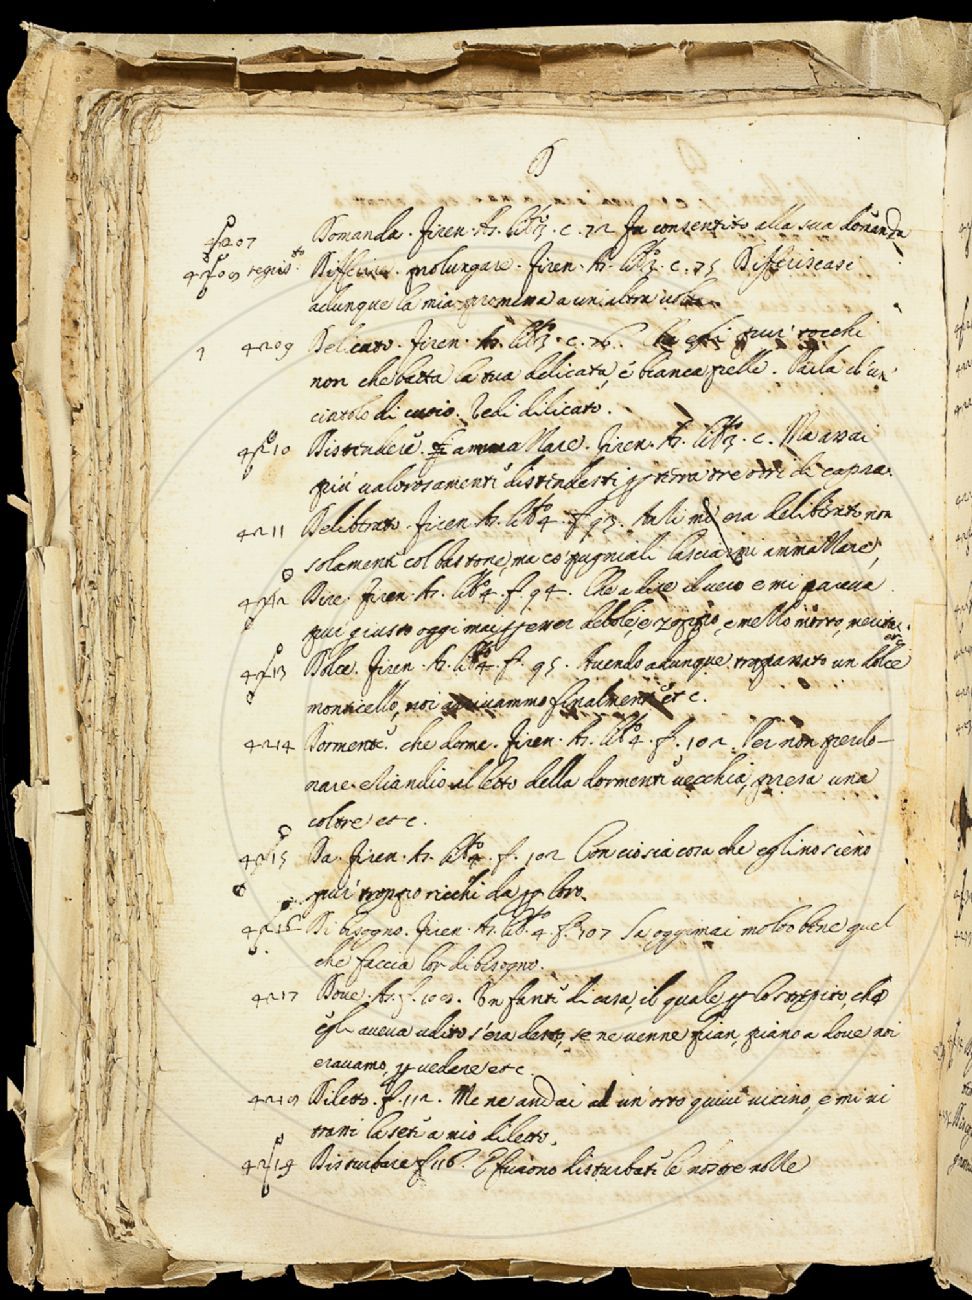 D
4207 Domanda. Firen. As. lib.º 3. c. 72 fu consentito alla sua domanda
4208 regis.to Differire. prolungare. Firen. As. lib.º 3. c. 75 Differiscasi
adunque la mia promessa a un'altra volta.
4209 Delicato. Firen. As. lib.º 3. c. 76. che gli tuoi occhi
non che batta la tua delicata, e bianca pelle. Vaila d'un
ciattolo di cuoio. Vedi dilicato.
4210 Distendere. ammazzare. Firen. As. lib.º 3. c. Ma assai
più valorosamente distendesti p terra tre otri di capra.
4211 Deliberato. Firen. As. lib.º 4. f. 93. Anzi mi era deliberato non
solamente col bastone, ma co' pugni lasciarmi ammazzare,
4212 Dire. Firen. As. lib.º 4. f. 94. Che a dire il vero e mi pareva
pur giusto oggimai p esser debole, e zoppo, e mezzo morto,
4213 Dolce. Firen. As. lib.º 4. f. 95. Avendo adunque trapassato un dolce
monticello, noi arrivammo finalmente etc.
4214 Dormente. che dorme. Firen. As. lib.º 4. f. 102. Per non perdo-
nare etiandio al letto della dormente vecchia, presa una
coltre etc.
4215 Da. Firen. As. lib.º 4. f. 102 Conciosiacosa che eglino sieno
pur troppo ricchi da p loro.
Di bisogno. Firen. As. lib. 4. f. 107 Sa oggimai molto bene quel
che faccia lor di bisogno.
4217 Dove. As. f. Un fante di casa, il quale p lo strepito, che
egli aveva udito s'era desto, se ne venne pian piano a dove noi
eravamo, p vedere etc.
Diletto. f. 112. Me ne andai ad un orto quivi vicino, e mi vi
trassi la sete a mio diletto.
4219 Disturbare f. 116. E furono disturbate le nostre nozze